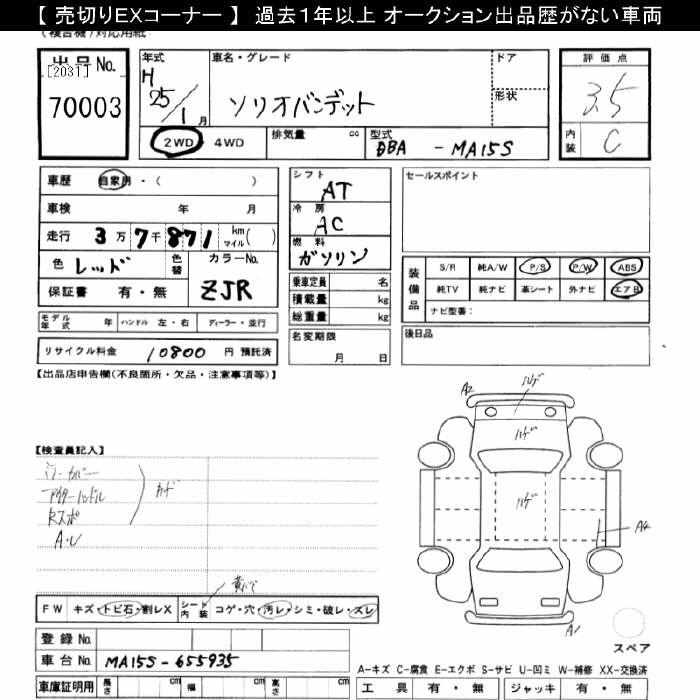 【 売切りEXコーナー 】 過去１年以上 オークション出品歴がない車両
出品No. [2031] 70003
年式 H 25/1 月
車名・グレード ソリオバンデット
ドア
形状
2WD 4WD
排気量 cc
型式 DBA - MA15S
評価点 3.5
内装 C
車歴 自家用・( )
車検 年 月
走行 3万7千871 km マイル( )
色 レッド 色替 カラーNo. ZJR
保証書 有・無
シフト AT
冷房 AC
燃料 ガソリン
乗車定員 名
積載量 kg
総重量 kg
セールスポイント
装備品 S/R 純A/W P/S P/W ABS
純TV 純ナビ 革シート 外ナビ エアB
ナビ型番：
モデル年式 年 ハンドル 左・右 ディーラー・並行
名変期限 月 日
後日品
リサイクル料金 10800 円 預託済
【出品店申告欄(不良箇所・欠品・注意事項等)】
A2 ハゲ
ハゲ
ハゲ
A4
A1
【検査員記入】
ミラーカバー
アウターハンドル
Rスポ
A.U
FW キズ・トビ石・割レX シート内装 コゲ・穴・汚レ・シミ・破レ・スレ
スペア
登録No.
車台No. MA15S-655935
A－キズ C－腐食 E－エクボ S－サビ U－凹ミ W－補修 XX－交換済
車庫証明用 長さ cm 幅 cm 高さ cm
工具 有・無 ジャッキ 有・無